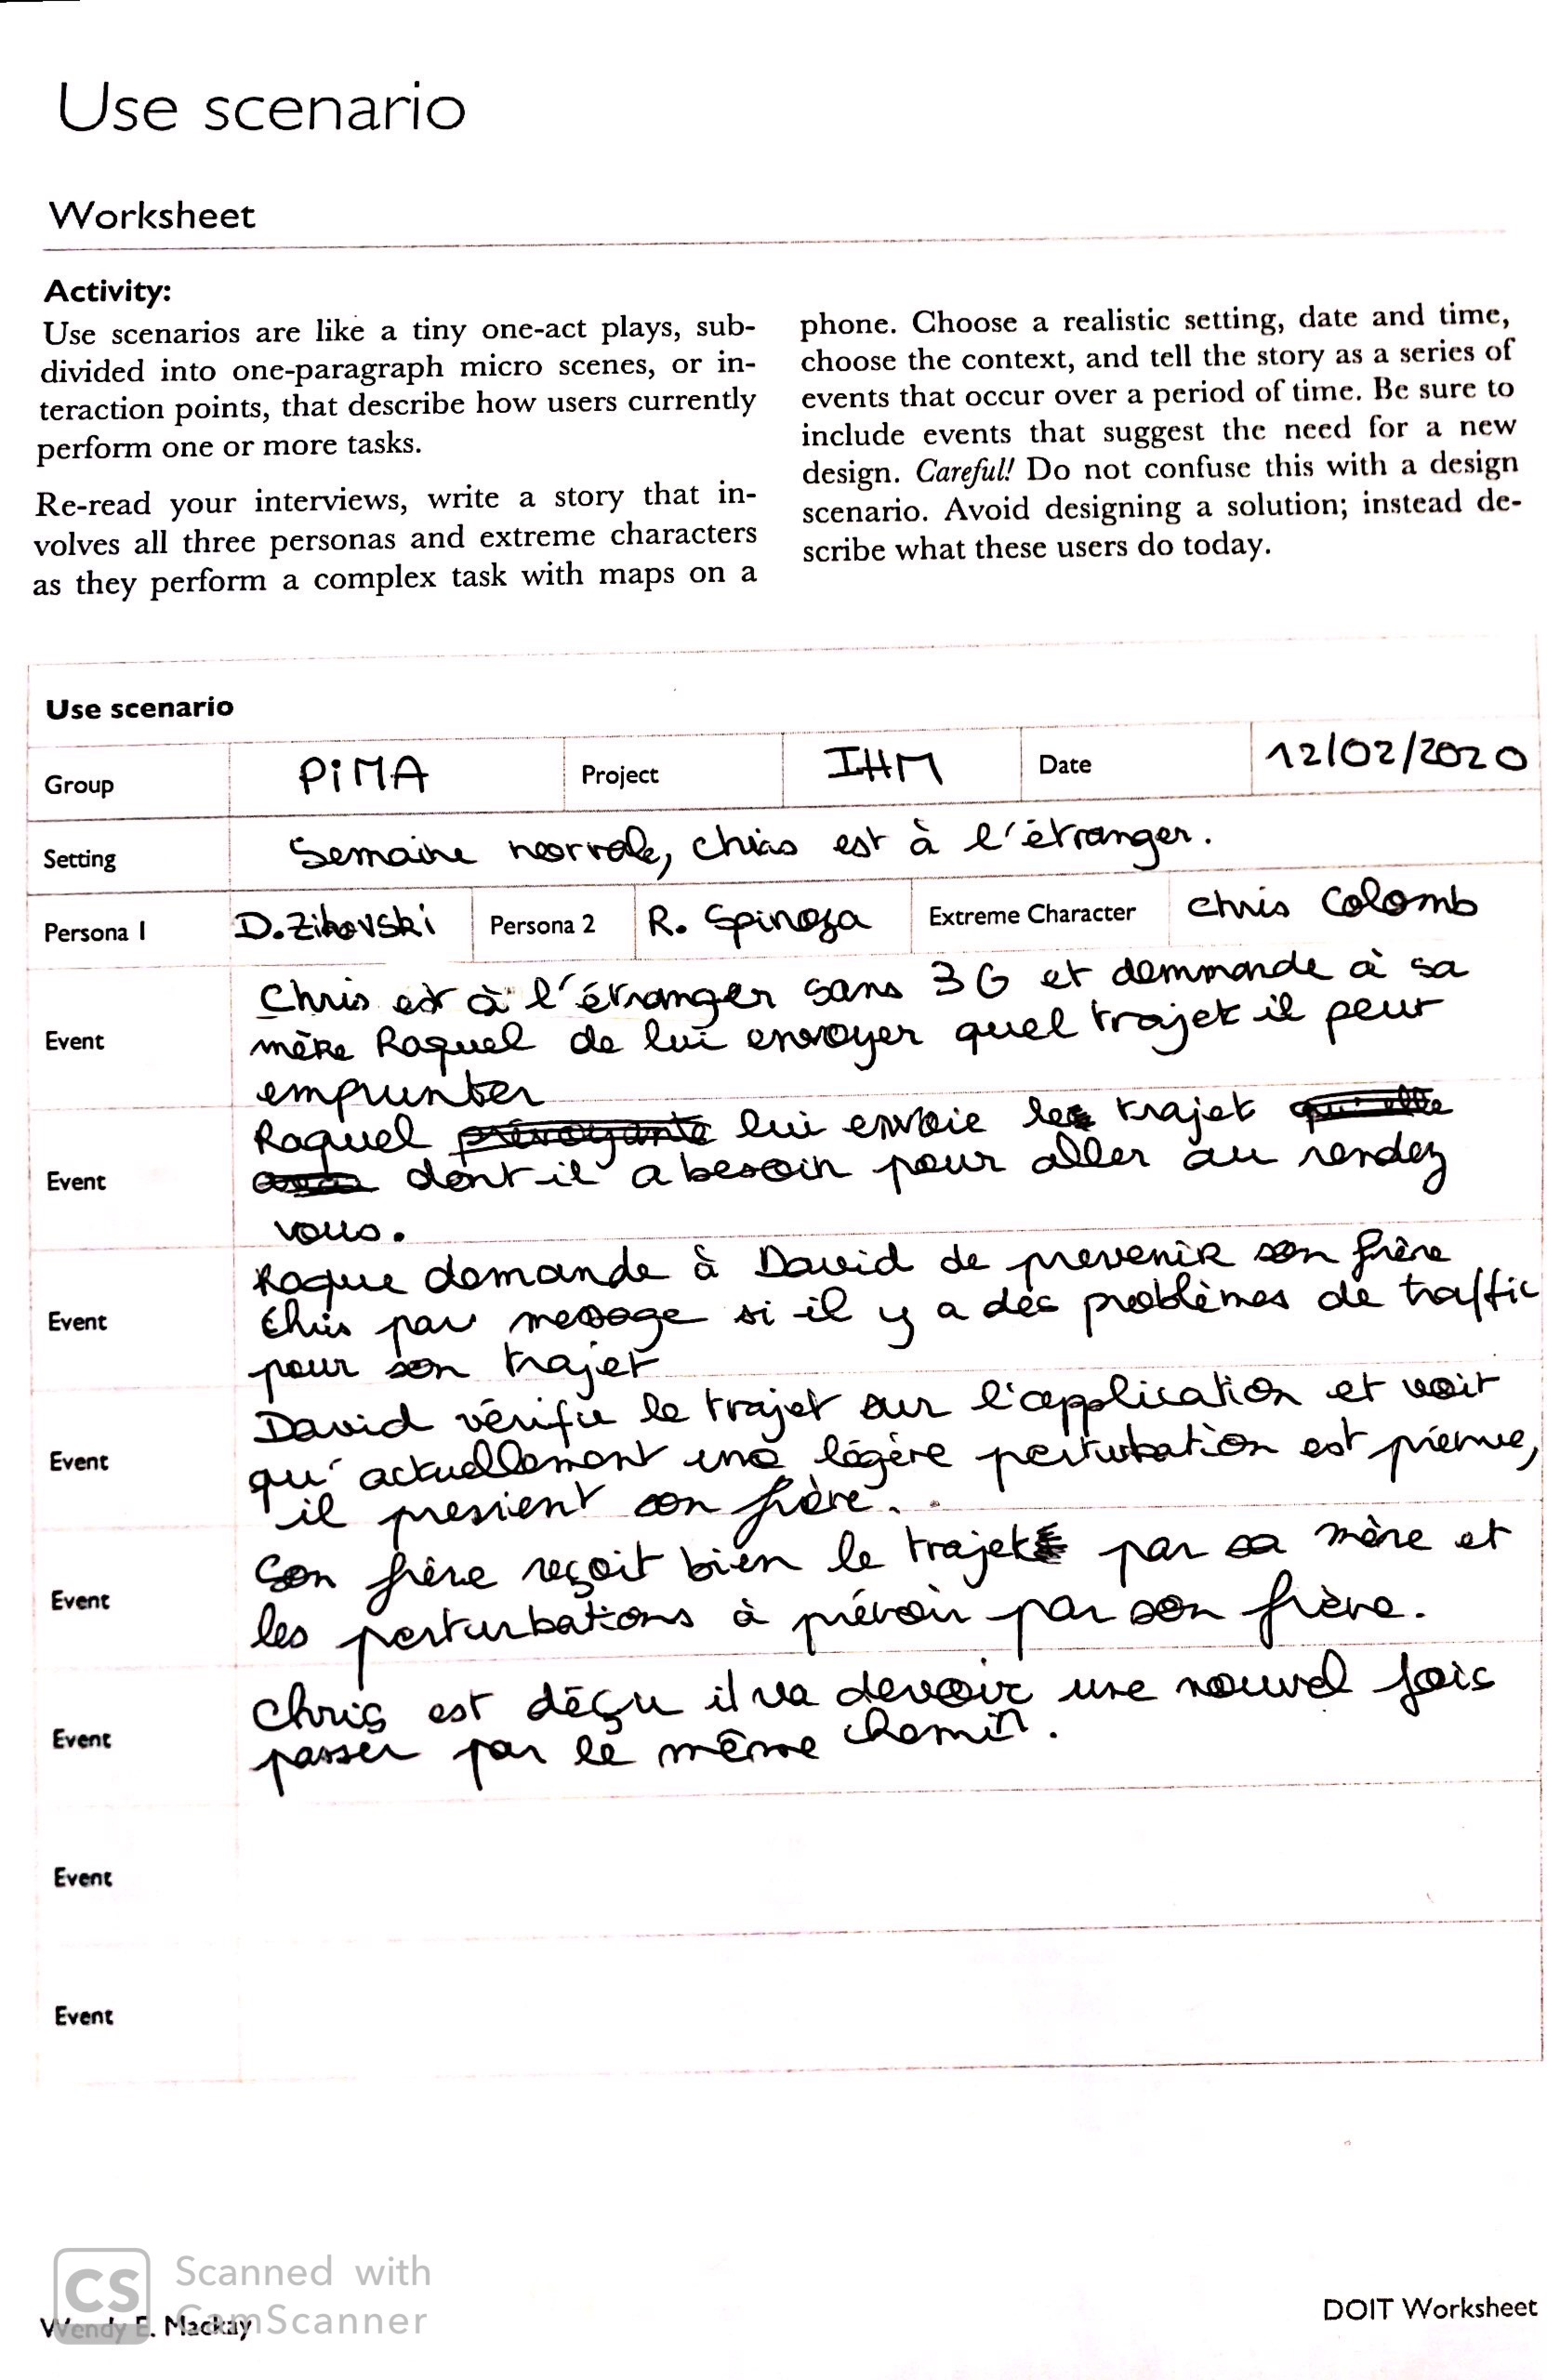 Use scenario
Worksheet
Activity:
Use scenarios are like a tiny one-act plays, sub-
divided into one-paragraph micro scenes, or in-
teraction points, that describe how users currently
perform one or more tasks.
Re-read your interviews, write a story that in-
volves all three personas and extreme characters
as they perform a complex task with maps on a
phone. Choose a realistic setting, date and time,
choose the context, and tell the story as a series of
events that occur over a period of time. Be sure to
include events that suggest the need for a new
design. Careful! Do not confuse this with a design
scenario. Avoid designing a solution; instead de-
scribe what these users do today.
Use scenario
Group PiMA Project IHM Date 12/02/2020
Setting Semaine normale, chris est à l'étranger.
Persona 1 D. Zikovski Persona 2 R. Spinoza Extreme Character chris Colomb
Event
Chris est à l'étranger sans 3G et demmande à sa
mère Raquel de lui envoyer quel trajet il peut
emprunter
Event
Raquel lui envoie le trajet
dont il a besoin pour aller au rendez
vous.
Event
Raque demande à David de prevenir son frère
Chris par message si il y a des problèmes de traffic
pour son trajet
Event
David vérifie le trajet sur l'application et voit
qu'actuellement une légère perturbation est prévue,
il previent son frère.
Event
Son frère reçoit bien le trajet par sa mère et
les perturbations à prévoir par son frère.
Event
Chris est déçu il va devoir une nouvel fois
passer par le même chemin.
Event
Event
CS Scanned with
CamScanner
Wendy E. Mackay
DOIT Worksheet